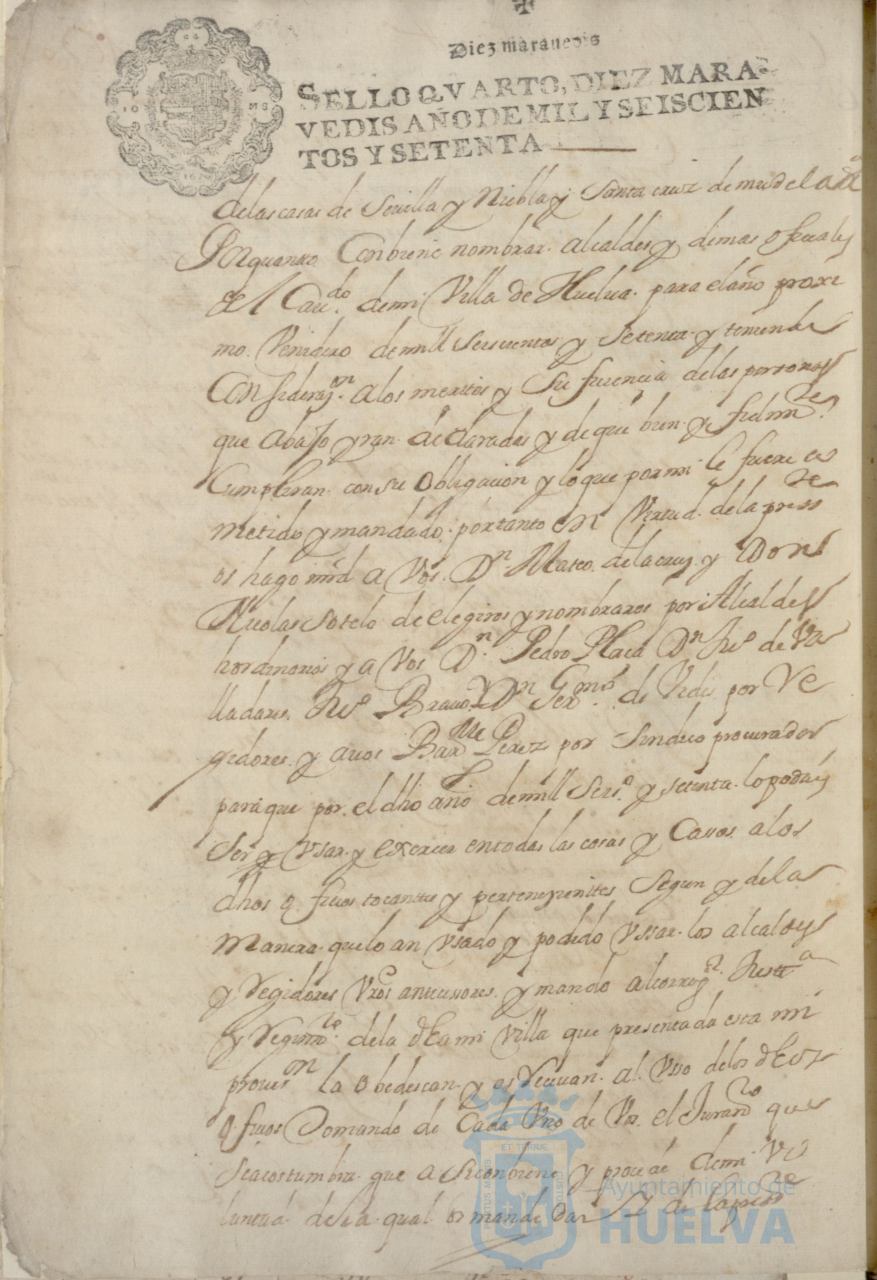 Diez maravedis
SELLO QVARTO, DIEZ MARA-
VEDIS AÑO DE MIL Y SEISCIEN
TOS Y SETENTA
de las casas de Sevilla y Niebla y Santa cruz de
Por quanto Conbiene nombrar alcaldes y demas ofiçiales
del Cavdo. de mi Villa de Huelva para el año proxi
mo Venidero de mill seiscientos y setenta y teniendo
Considerazon. a los meritos y Sufiçiençia de las personas
que abajo yran declaradas y de que bien y fielmte.
Cumpliran con su Obligacion y lo que por mi le fuere co
metido y mandado, por tanto en Virtud de la presste
os hago mrd a Vos Dn Mateo de la cruz y Don
Nicolas sotelo de elegiros y nombraros por Alcaldes
hordinarios y a Vos Dn Pedro Plaça Dn. de Va
lladares Bravo y Dn Germo. de por Re
gidores y a vos Barme Perez por Sindico procurador
para que por el dho año de mill Seiso. y setenta lo podais
Ser y Vsar y exercer en todas las cosas y Casos a los
dhos ofiçios tocantes y perteneçientes Segun y de la
Manera que lo an Vsado y podido Vssar los alcaldes
y Regidores Vros anteçessores y mando al corregr. Justa
y Regimto. de la dha mi Villa que presentada esta mi
provison la Obedescan y os Reçivan al Vso de los dhos
ofiçios tomando de Cada Vno de Vos el Juramto que
se acostumbra que asi conbiene y proçede de mi Vo
luntad de la qual os mande dar de la presste
Ayuntamiento de
HUELVA